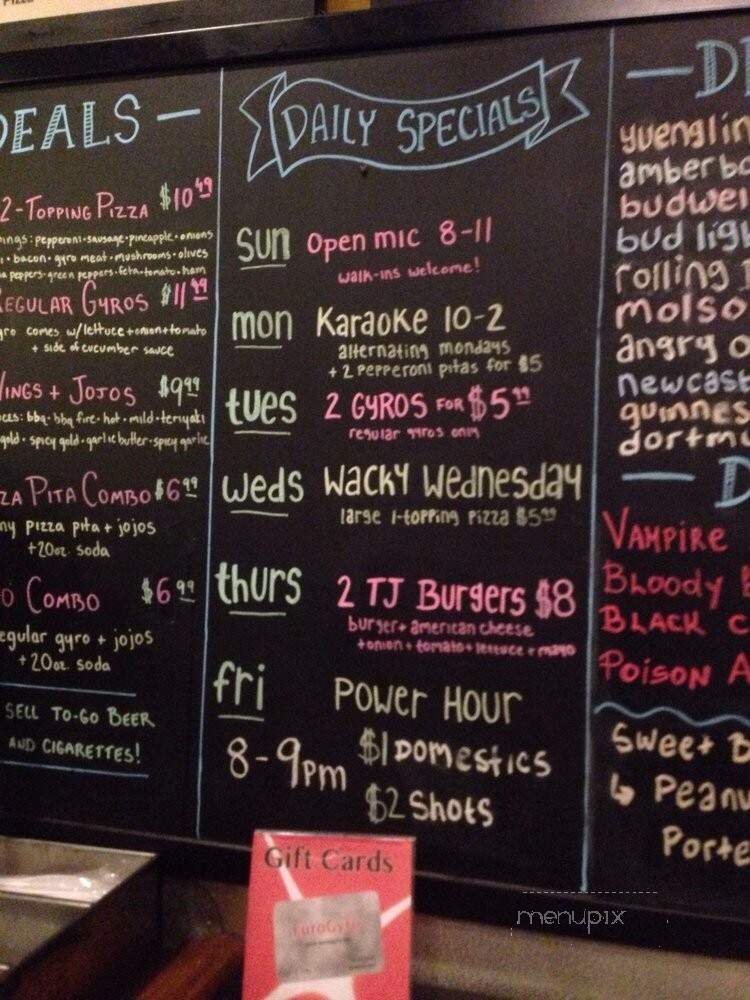 DEALS
2-TOPPING PIZZA $10.49
pepperoni·sausage·pineapple·onions
bacon·gyro meat·mushrooms·olives
peppers·green peppers·feta·tomato·ham
REGULAR GYROS $11.49
gyro comes w/lettuce+onion+tomato
+ side of cucumber sauce
WINGS + JOJOS $9.99
bbq·bbq fire·hot·mild·teriyaki
gold·spicy gold·garlic butter·spicy garlic
PIZZA PITA COMBO $6.99
pizza pita + jojos
+20oz. soda
COMBO $6.99
regular gyro + jojos
+20oz. soda
SELL TO-GO BEER
AND CIGARETTES!
DAILY SPECIALS
sun Open mic 8-11
walk-ins welcome!
mon Karaoke 10-2
alternating mondays
+ 2 pepperoni pitas for $5
tues 2 GYROS FOR $5.99
regular gyros only
weds Wacky Wednesday
large 1-topping pizza $5.99
thurs 2 TJ Burgers $8
burger+american cheese
+onion+tomato+lettuce+mayo
fri Power Hour
8-9pm $1 Domestics
$2 Shots
yuenglin
amber bo
budwei
bud ligh
rolling
molso
angry o
newcast
guinnes
dortmu
D
VAMPIRE
BLOODY
BLACK C
POISON A
Sweet B
↳ Peanu
Porte
Gift Cards
EuroGyro
menupix